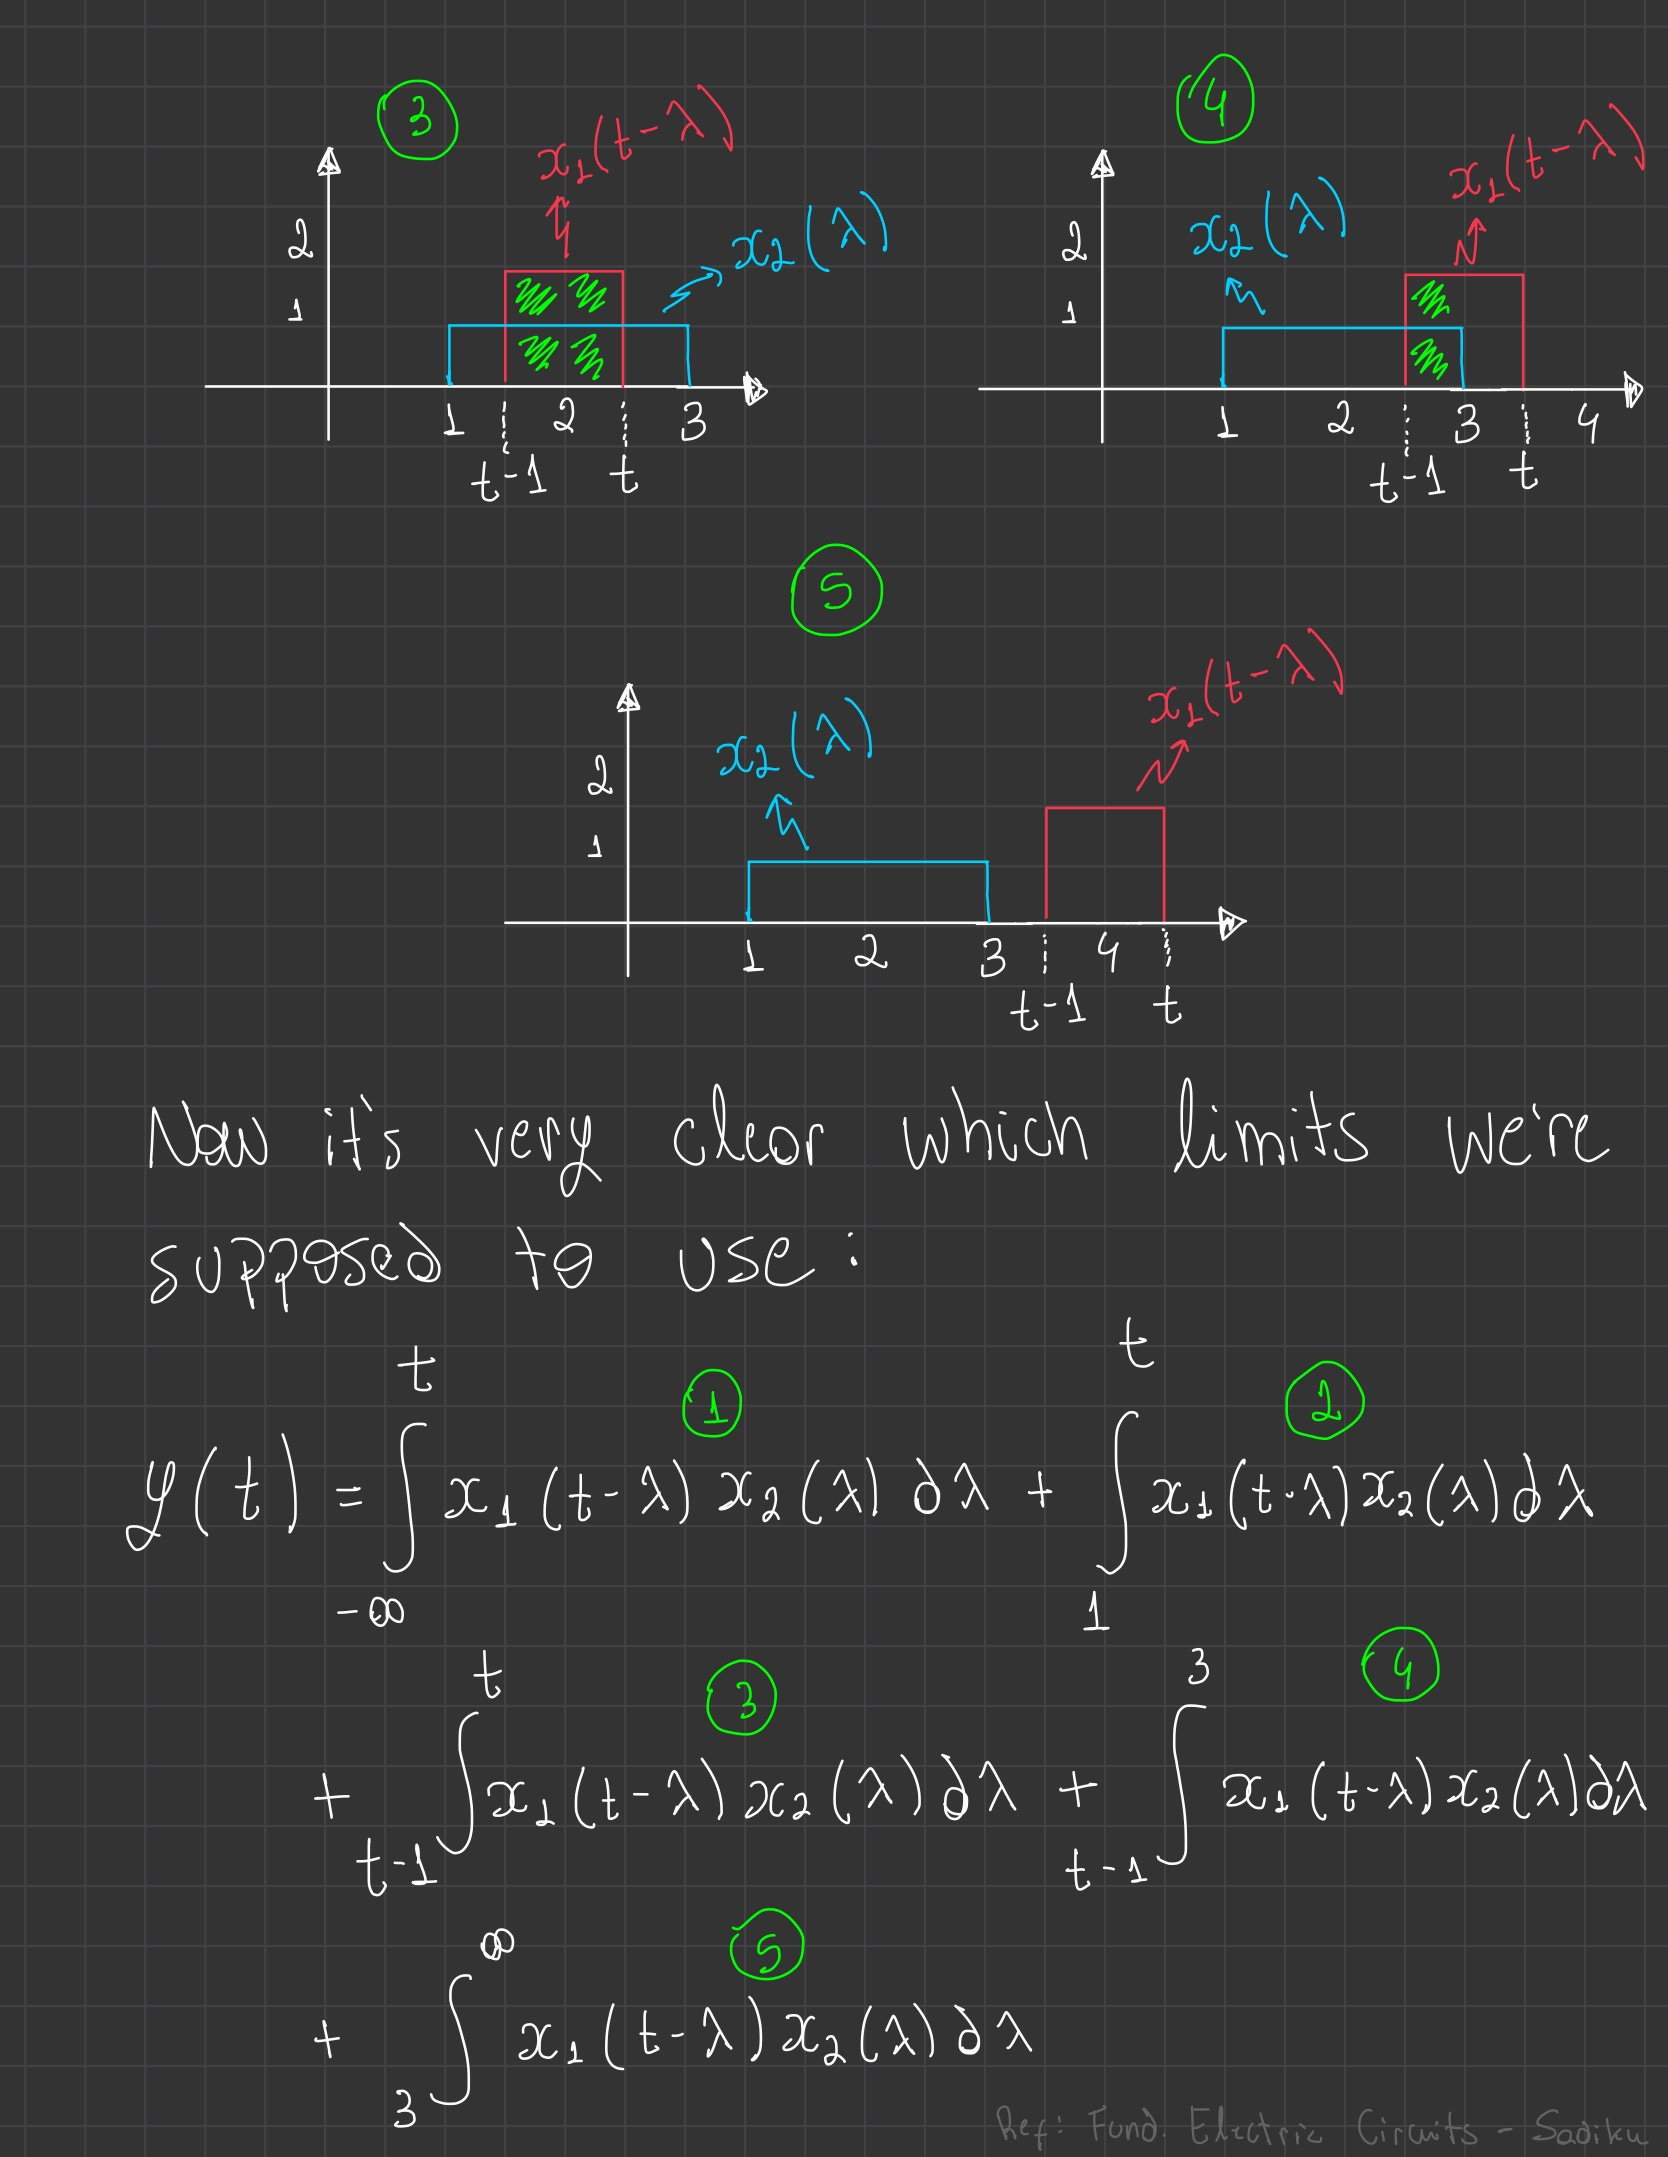 ③ ④
x₁(t-λ) x₁(t-λ)
x₂(λ) x₂(λ)
2 2
1 1
1 2 3 1 2 3 4
t-1 t t-1 t
⑤
x₁(t-λ)
x₂(λ)
2
1
1 2 3 4
t-1 t
Now it's very clear which limits we're
supposed to use:
① ②
y(t) = ∫_{-∞}^{t} x₁(t-λ) x₂(λ) dλ + ∫_{1}^{t} x₁(t-λ) x₂(λ) dλ
③ ④
+ ∫_{t-1}^{t} x₁(t-λ) x₂(λ) dλ + ∫_{t-1}^{3} x₁(t-λ) x₂(λ) dλ
⑤
+ ∫_{3}^{∞} x₁(t-λ) x₂(λ) dλ
Ref: Fund. Electric Circuits - Sadiku